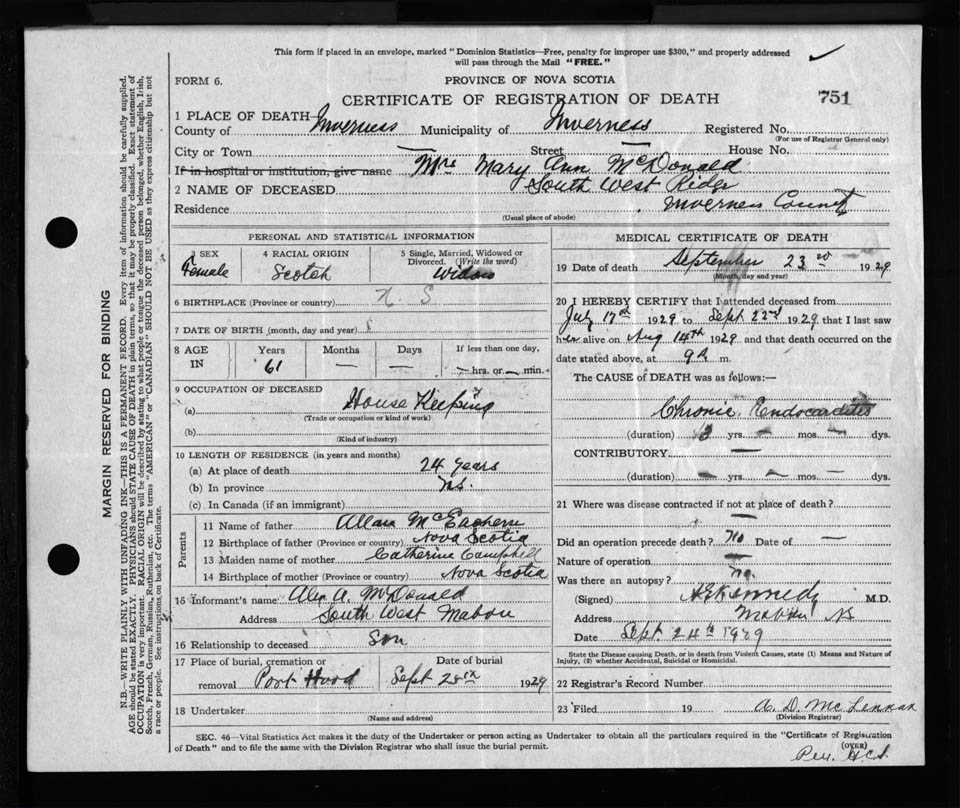 This form if placed in an envelope, marked "Dominion Statistics—Free, penalty for improper use $300," and properly addressed
will pass through the Mail "FREE."
FORM 6.
PROVINCE OF NOVA SCOTIA
CERTIFICATE OF REGISTRATION OF DEATH
751
1 PLACE OF DEATH
County of Inverness Municipality of Inverness Registered No.
(For use of Registrar General only)
City or Town — Street — House No.
If in hospital or institution, give name Mrs Mary Ann McDonald
2 NAME OF DECEASED South West Ridge
Residence Inverness County
(Usual place of abode)
PERSONAL AND STATISTICAL INFORMATION
3 SEX Female
4 RACIAL ORIGIN Scotch
5 Single, Married, Widowed or Divorced. (Write the word) Widow
6 BIRTHPLACE (Province or country) N. S
7 DATE OF BIRTH (month, day and year)
8 AGE IN Years 61 Months — Days — If less than one day, — hrs. or — min.
9 OCCUPATION OF DECEASED
(a) House Keeping
(Trade or occupation or kind of work)
(b)
(Kind of industry)
10 LENGTH OF RESIDENCE (in years and months)
(a) At place of death 24 years
(b) In province N.S.
(c) In Canada (if an immigrant)
Parents
11 Name of father Allan McEachern
12 Birthplace of father (Province or country) Nova Scotia
13 Maiden name of mother Catherine Campbell
14 Birthplace of mother (Province or country) Nova Scotia
15 Informant's name Alex A. McDonald
Address South West Mabou
16 Relationship to deceased Son
17 Place of burial, cremation or removal Port Hood
Date of burial Sept 25th 1929
18 Undertaker
(Name and address)
MEDICAL CERTIFICATE OF DEATH
19 Date of death September 23rd 1929
(Month, day and year)
20 I HEREBY CERTIFY that I attended deceased from
July 17th 1929 to Sept 22nd 1929 that I last saw
her alive on Aug 14th 1929 and that death occurred on the
date stated above, at 9 m.
The CAUSE of DEATH was as follows:—
Chronic Endocarditis
(duration) 3 yrs. — mos. — dys.
CONTRIBUTORY —
(duration) — yrs. — mos. — dys.
21 Where was disease contracted if not at place of death?
—
Did an operation precede death? no Date of —
Nature of operation —
Was there an autopsy? no.
(Signed) Kennedy M.D.
Address Mabou NS
Date Sept 24th 1929
State the Disease causing Death, or in death from Violent Causes, state (1) Means and Nature of
Injury, (2) whether Accidental, Suicidal or Homicidal.
22 Registrar's Record Number
23 Filed 19 A. D. McLennan
(Division Registrar)
SEC. 46—Vital Statistics Act makes it the duty of the Undertaker or person acting as Undertaker to obtain all the particulars required in the "Certificate of Registration
of Death" and to file the same with the Division Registrar who shall issue the burial permit.
(OVER)
Per. H.C.S.
MARGIN RESERVED FOR BINDING
N.B.—WRITE PLAINLY WITH UNFADING INK—THIS IS A PERMANENT RECORD. Every item of information should be carefully supplied.
AGE should be stated EXACTLY. PHYSICIANS should STATE CAUSE OF DEATH in plain terms, so that it may be properly classified. Exact statement of
OCCUPATION is very important. RACIAL ORIGIN will be described by stating to what people or tongue the deceased person belonged, whether English, Irish,
Scotch, French, German, Russian, Ruthenian, etc. The terms "AMERICAN" or "CANADIAN" SHOULD NOT BE USED as they express citizenship but not
a race or people. See instructions on back of Certificate.